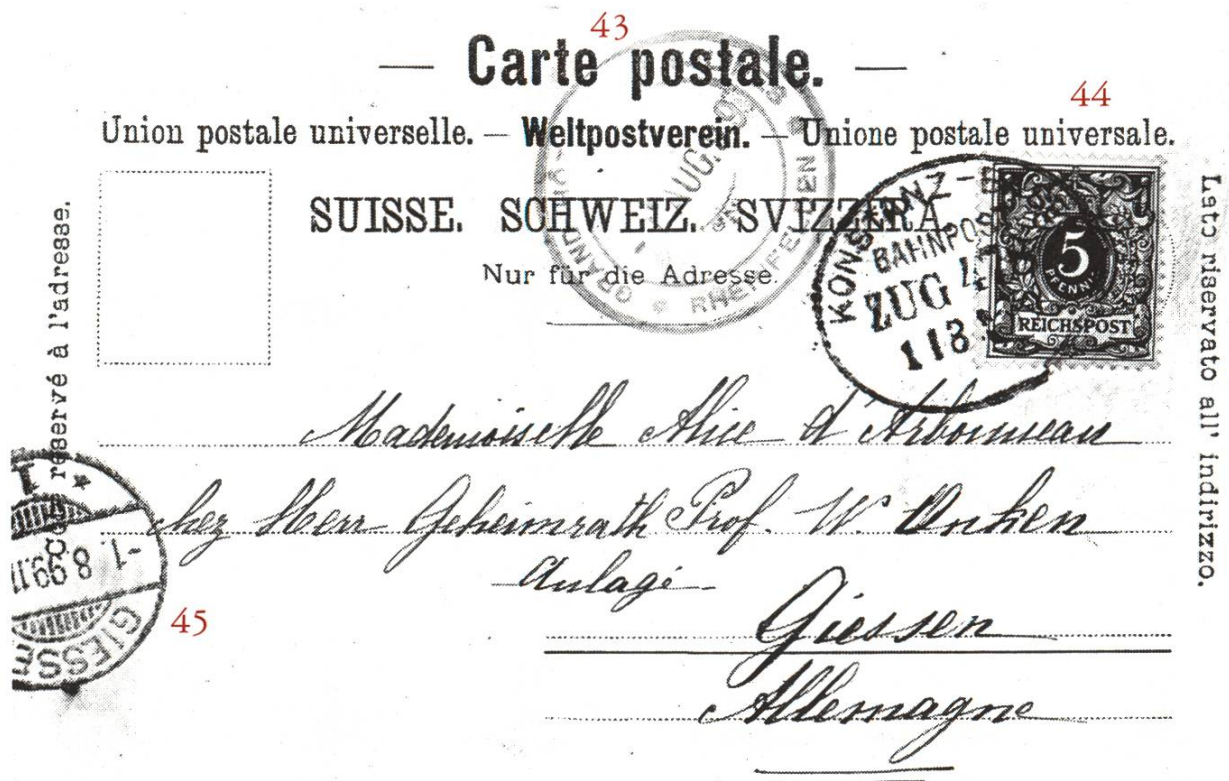 43
— Carte postale. —
44
Union postale universelle. — Weltpostverein. — Unione postale universale.
SUISSE. SCHWEIZ. SVIZZERA.
Nur für die Adresse.
Côté réservé à l'adresse.
Lato riservato all' indirizzo.
GRAND
AUG.
RHEINFELDEN
KONSTANZ-
BAHNPOST
ZUG
1 18
5
PFENNIG
REICHSPOST
Mademoiselle Alice d'Arbonneau
chez Herr Geheimrath Prof. W. Onken
Anlage
Giessen
Allemagne
1
-1. 8 99. 11
GIESSE
45